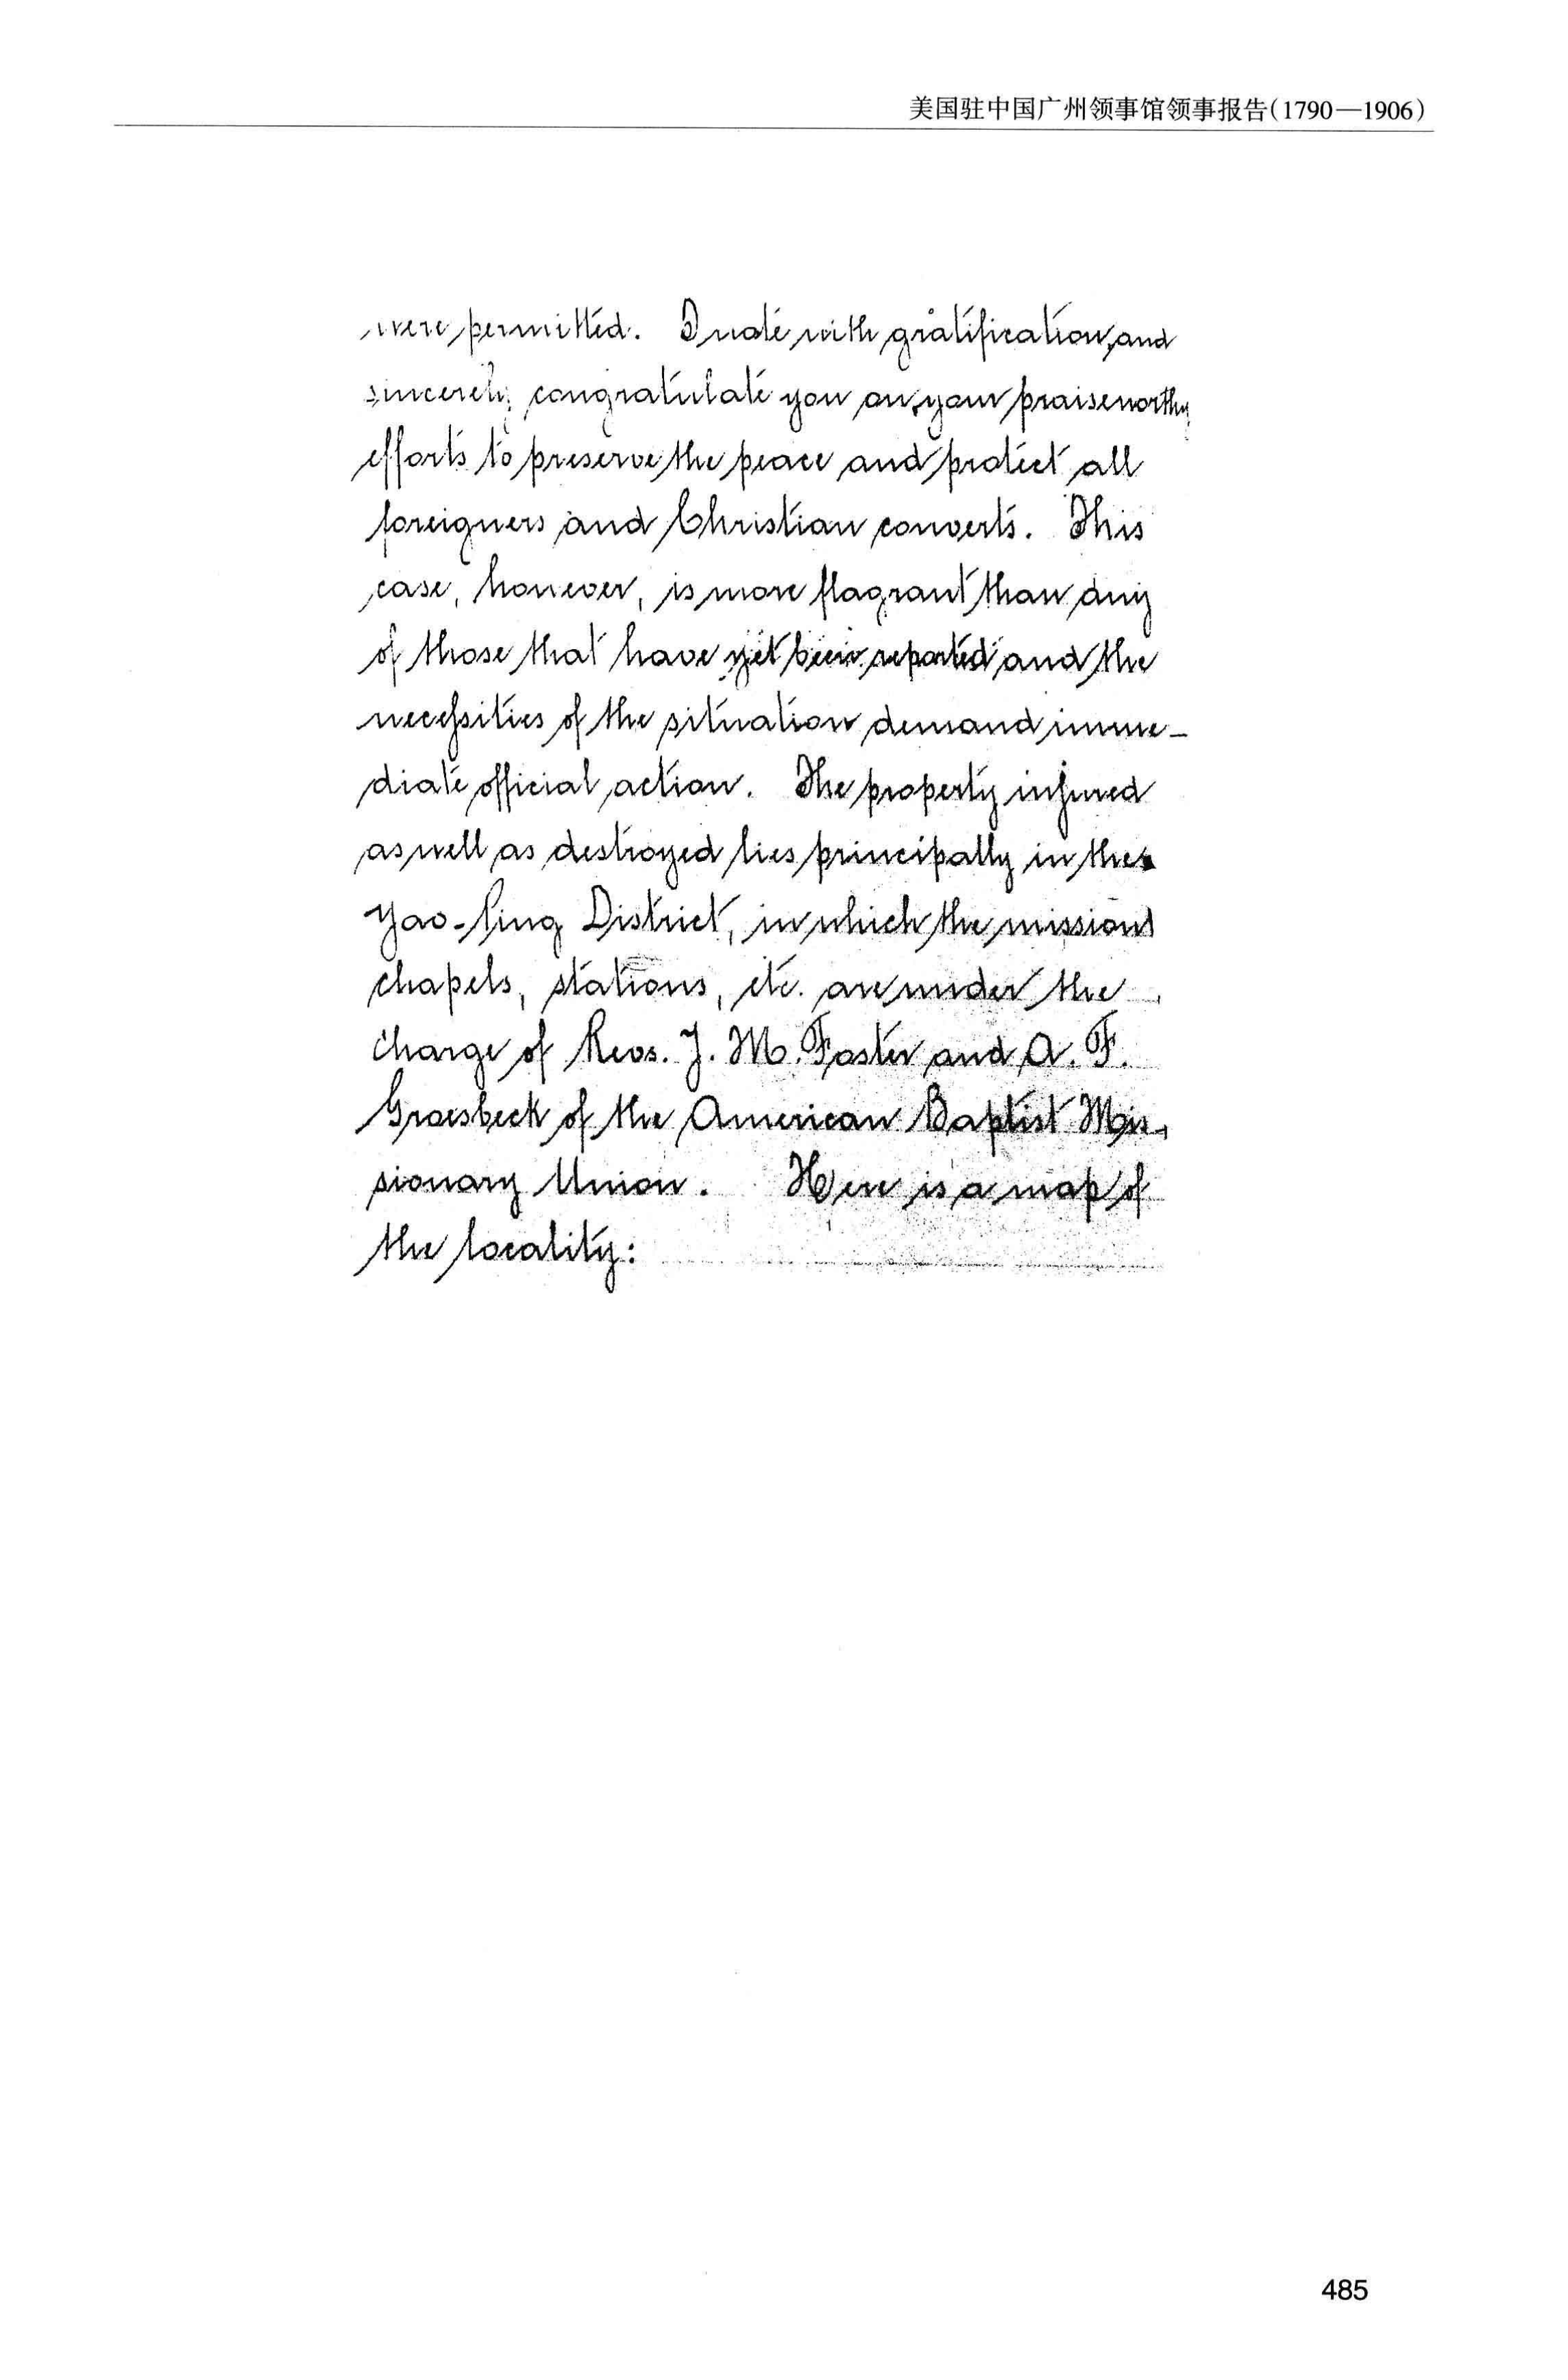 美国驻中国广州领事馆领事报告(1790—1906)
were permitted. I note with gratification, and
sincerely congratulate you on your praiseworthy
efforts to preserve the peace and protect all
foreigners and Christian converts. This
case, however, is more flagrant than any
of those that have yet been reported and the
necessities of the situation demand imme-
diate official action. The property injured
as well as destroyed lies principally in the
Yao-Ping District, in which the mission
chapels, stations, etc. are under the
charge of Revs. J. M. Foster and A. F.
Groesbeck of the American Baptist Mis-
sionary Union. Here is a map of
the locality:
485